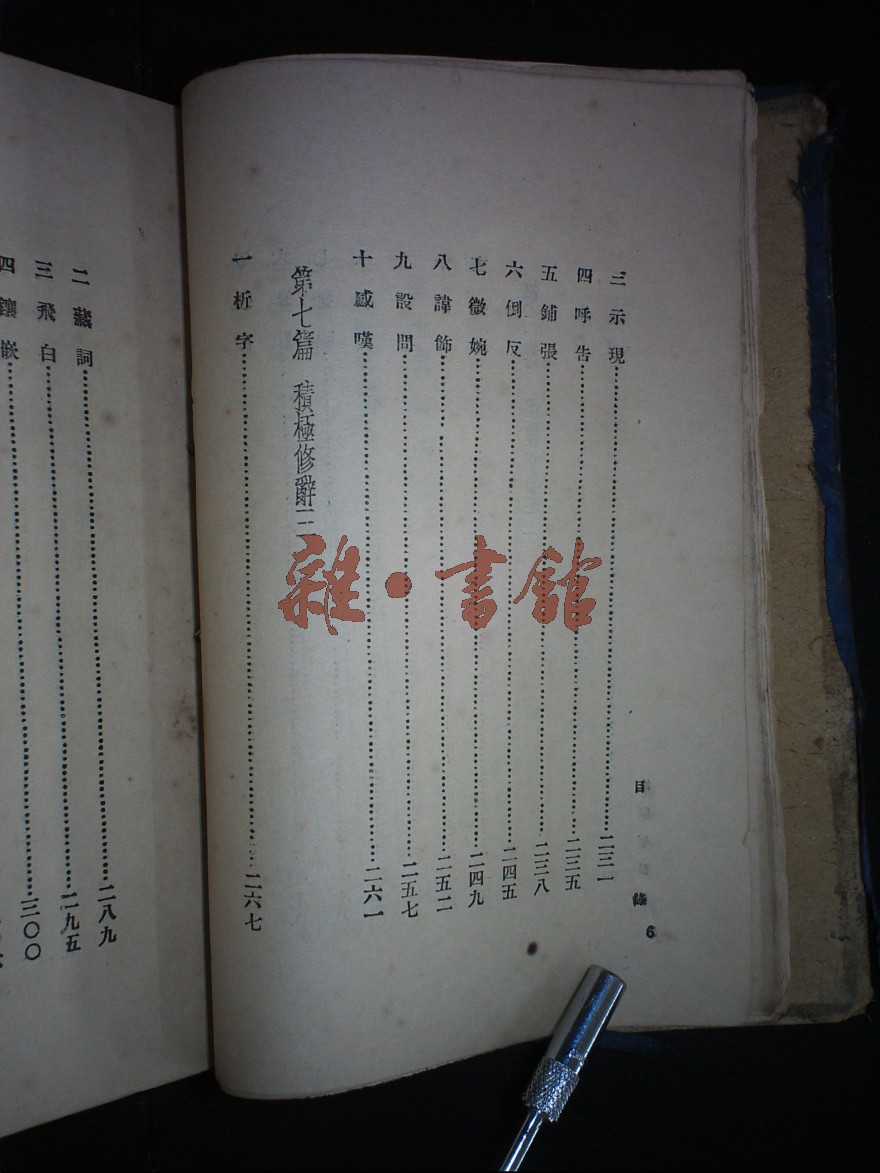 目錄 6
三 示現 二三一
四 呼告 二三五
五 鋪張 二三八
六 倒反 二四五
七 微婉 二四九
八 諱飾 二五二
九 設問 二五七
十 感嘆 二六一
第七篇 積極修辭三
一 析字 二六七
二 藏詞 二八九
三 飛白 二九五
四 鑲嵌 三〇〇
雜·書館